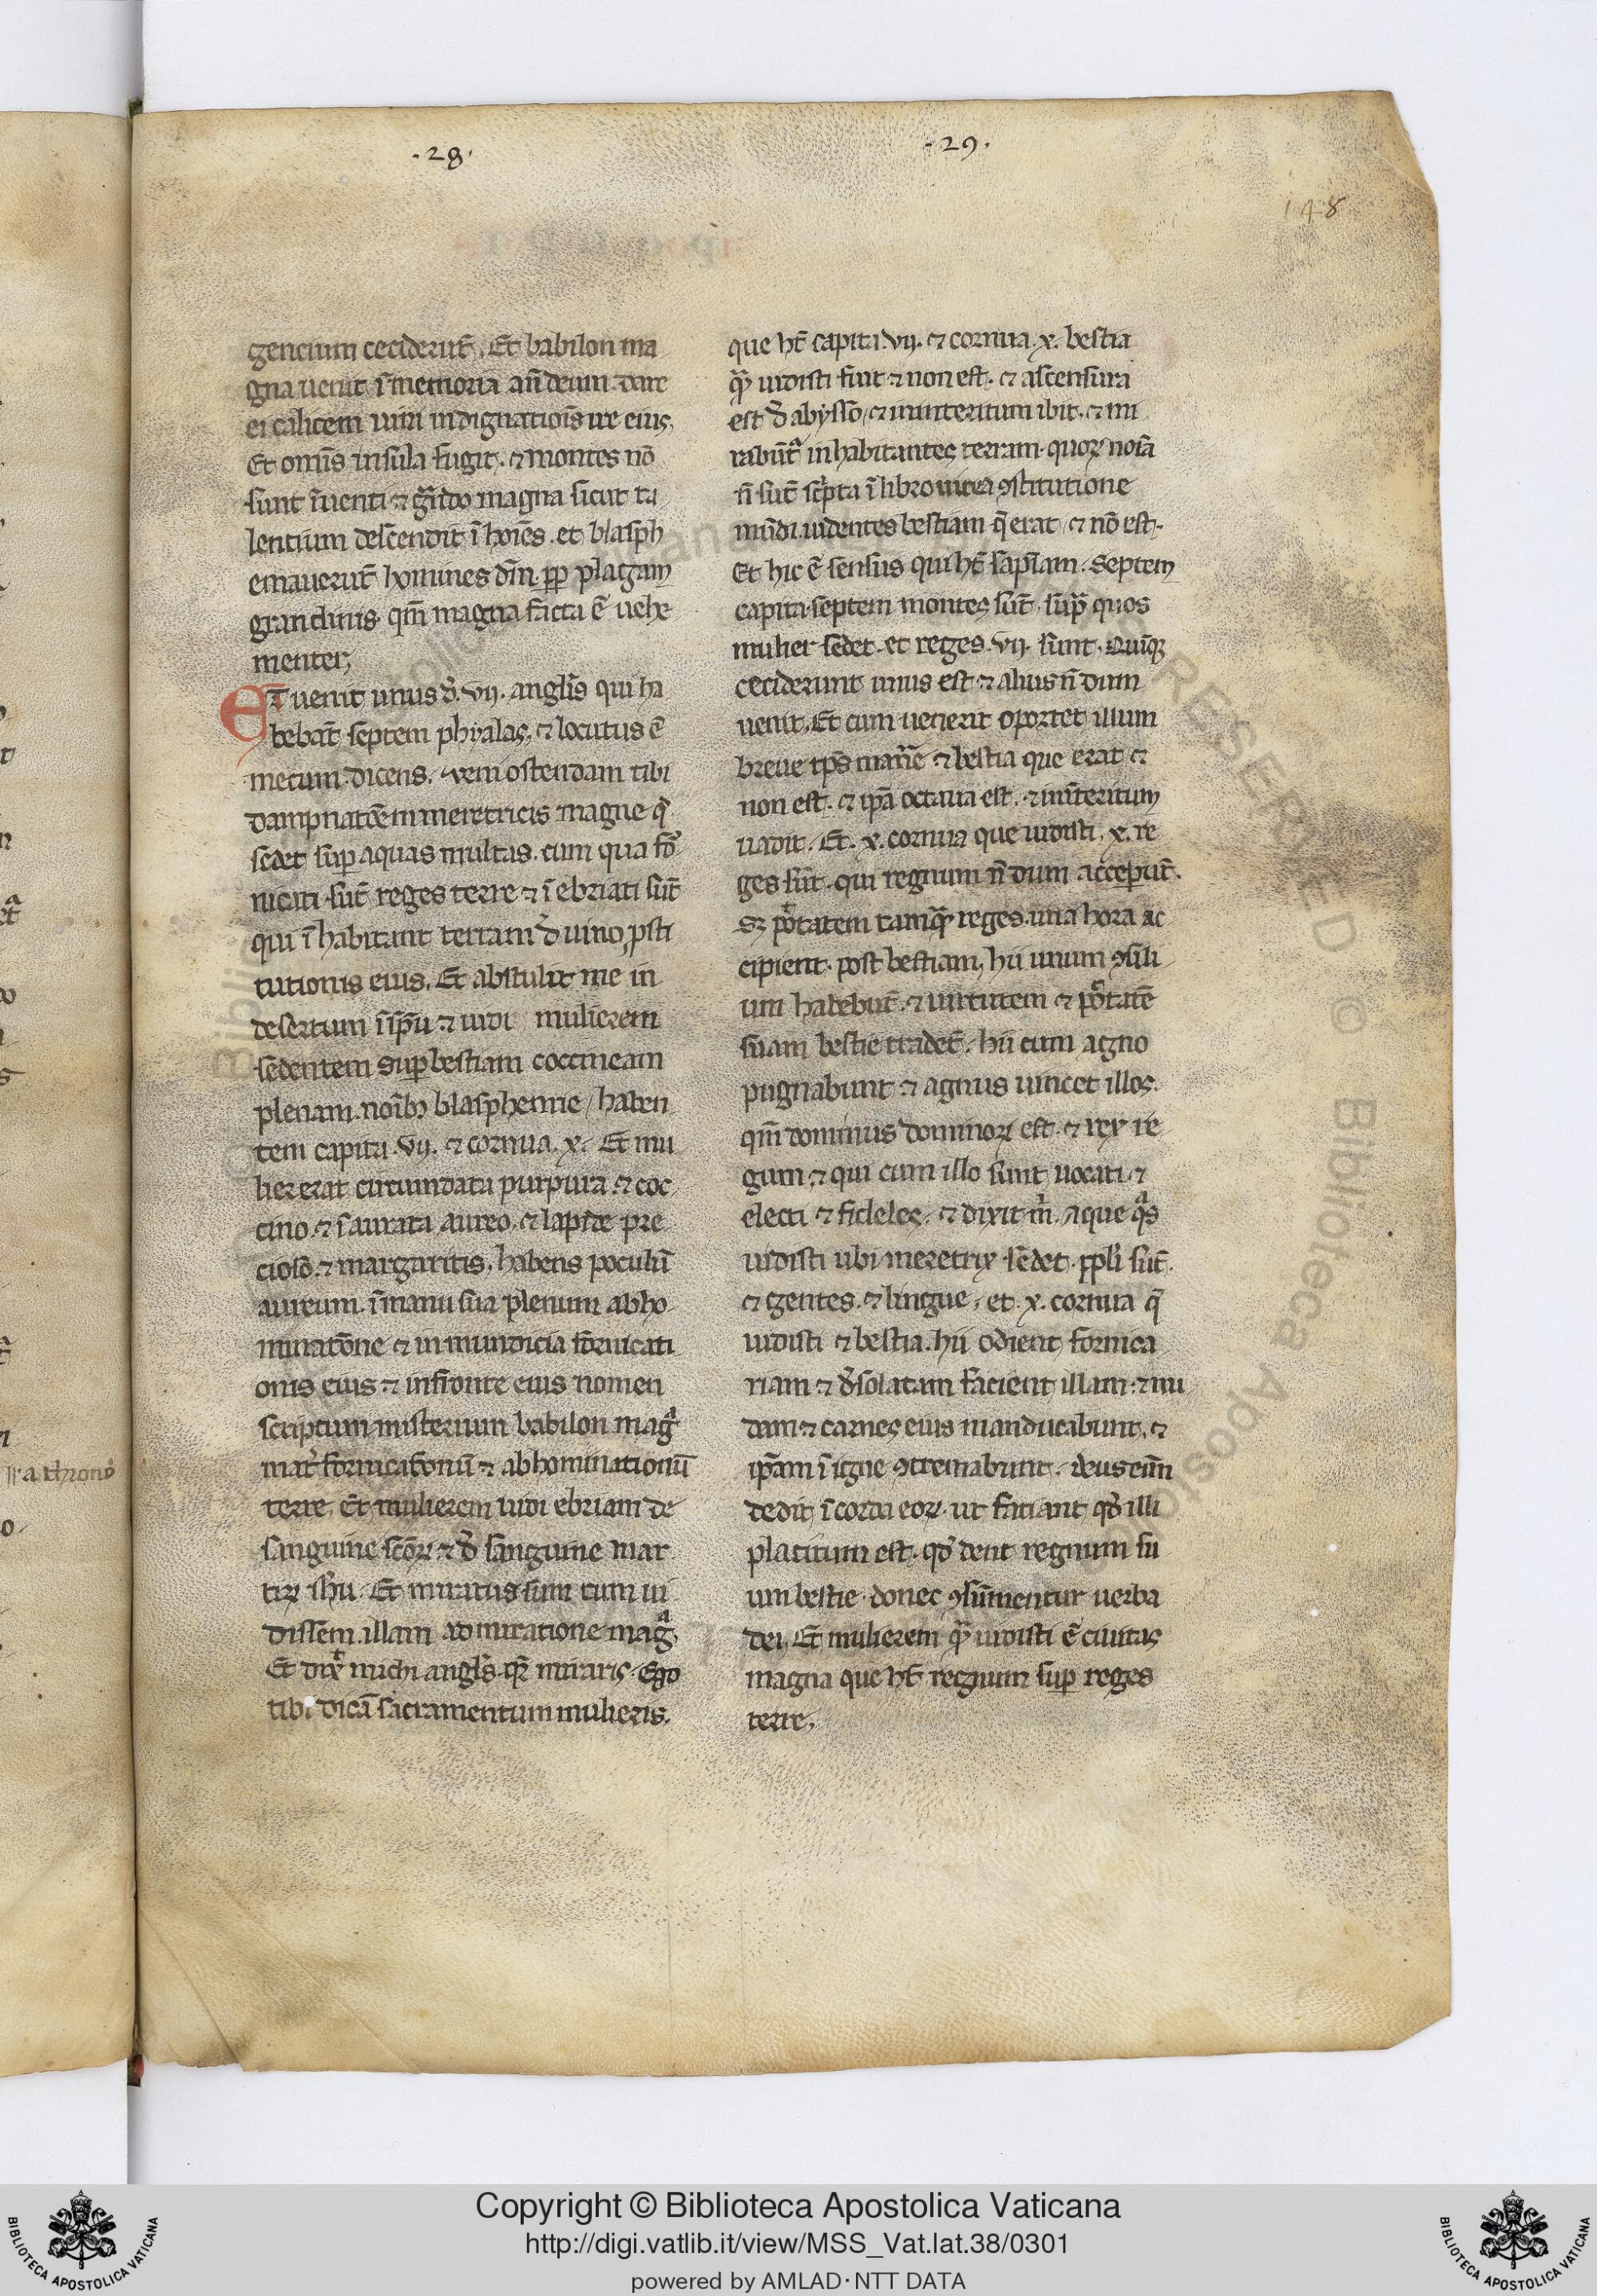 .28.
.29.
148
gencium ceciderut̄. Et babilon ma
gna uenit ī memoria an̄ deum. dare
ei calicem uini indignatiōis ire eius.
Et omīs insula fugit. ⁊ montes nō
sunt īuenti ⁊ gͣndo magna sicut ta
lentum descendit ī hoīes. et blasph
emauerut̄ homines dm̄. pp̄ plagam
grandinis. qm̄ magna facta ē uehe
menter,
ET uenit unus d̄. vij. angl̄is qui ha
bebāt septem phyalas, ⁊ locutus ē
mecum. dicens. ueni ostendam tibi
dampnatōem meretricis magne q̄
sedet suꝑ aquas multas. cum qua for
nicati sut̄ reges terre ⁊ īebriati sut̄
qui īhabitant terram d̄ uino ꝓsti
tutionis eius. Et abstulit me in
desertum ī sp̄u ⁊ uidi mulierem
sedentem suꝑ bestiam coccineam
plenam noīb; blasphemie / haben
tem capita. vij. ⁊ cornua. x. Et mu
lier erat circumdata purpura. ⁊ coc
cino. ⁊ īaurata aureo. ⁊ lapide pre
cioso. ⁊ margaritis. habens poculū
aureum. ī manu sua plenum abho
minatōne ⁊ inmundicia fornicati
onis eius ⁊ infronte eius nomen
scriptum misterium babilon magͣ
mat̄ fornicatōnū ⁊ abhominationū
terre. et mulierem uidi ebriam de
sanguine scōꝝ. ⁊ d̄ sanguine mar
tiꝝ ih̄u. Et miratus sum cum ui
dissem. illam admiratione magͣ.
Et dix̄ michi angl̄s. qr̄ miraris. Ego
tibi dicā sacramentum mulieris.
que ht̄ capita. vij. ⁊ cornua. x. bestia
qͣ̄ uidisti fuit ⁊ non est. ⁊ ascensura
est d̄ abysso, ⁊ ininteritum ibit. ⁊ mi
rabūtͣ inhabitantes terram. quoꝝ noīa
n̄ sut̄ sc̄pta ī libro uite a ꝯstitutione
mūdi. uidentes bestiam q̄ erat, ⁊ nō est.
Et hic ē sensus qui ht̄ sapīam. Septem
capita. septem montes sut̄, supͣ quos
mulier sedet. et reges. vij. sunt. Quīqꝫ
ceciderunt unus est ⁊ alius n̄dum
uenit. Et cum uenerit oportet illum
breue tp̄s manē̄e ⁊ bestia que erat ⁊
non est. ⁊ ip̄a octaua est. ⁊ inīteritum
uadit. Et. x. cornua que uidisti. x. re
ges sūt. qui regnum n̄dum acceperut̄.
Sꝫ pͦtatem tamqͣ̄ reges. una hora ac
cipient. post bestiam, hii unum ꝯsili
um habebut̄. ⁊ uirtutem ⁊ pͦtatē
suam bestie tradet̄. hii cum agno
pugnabunt ⁊ agnus uincet illos.
qm̄ dominus dominoꝝ est. ⁊ rex re
gum ⁊ qui cum illo sunt, uocati. ⁊
electi ⁊ fideles. ⁊ dixit m̄. Aque qͣs
uidisti ubi meretrix sedet. ppl̄i sut̄.
⁊ gentes. ⁊ lingue. et. x. cornua q̄
uidisti ⁊ bestia. hii odient fornica
riam ⁊ d̄solatam facient illam. ⁊ nu
dam ⁊ carnes eius manducabunt. ⁊
ip̄am ī igne ꝯcremabunt. deus eni̅m
dedit ī corda eoꝝ. ut faciant qd̄ illi
placitum est. qd̄ dent regnum su
um bestie. donec ꝯsūmentur uerba
dei. Et mulierem qͣ̄ uidisti ē ciuitas
magna que ht̄ regnum suꝑ reges
terre.
Copyright © Biblioteca Apostolica Vaticana
http://digi.vatlib.it/view/MSS_Vat.lat.38/0301
powered by AMLAD·NTT DATA
BIBLIOTECA APOSTOLICA VATICANA
BIBLIOTECA APOSTOLICA VATICANA